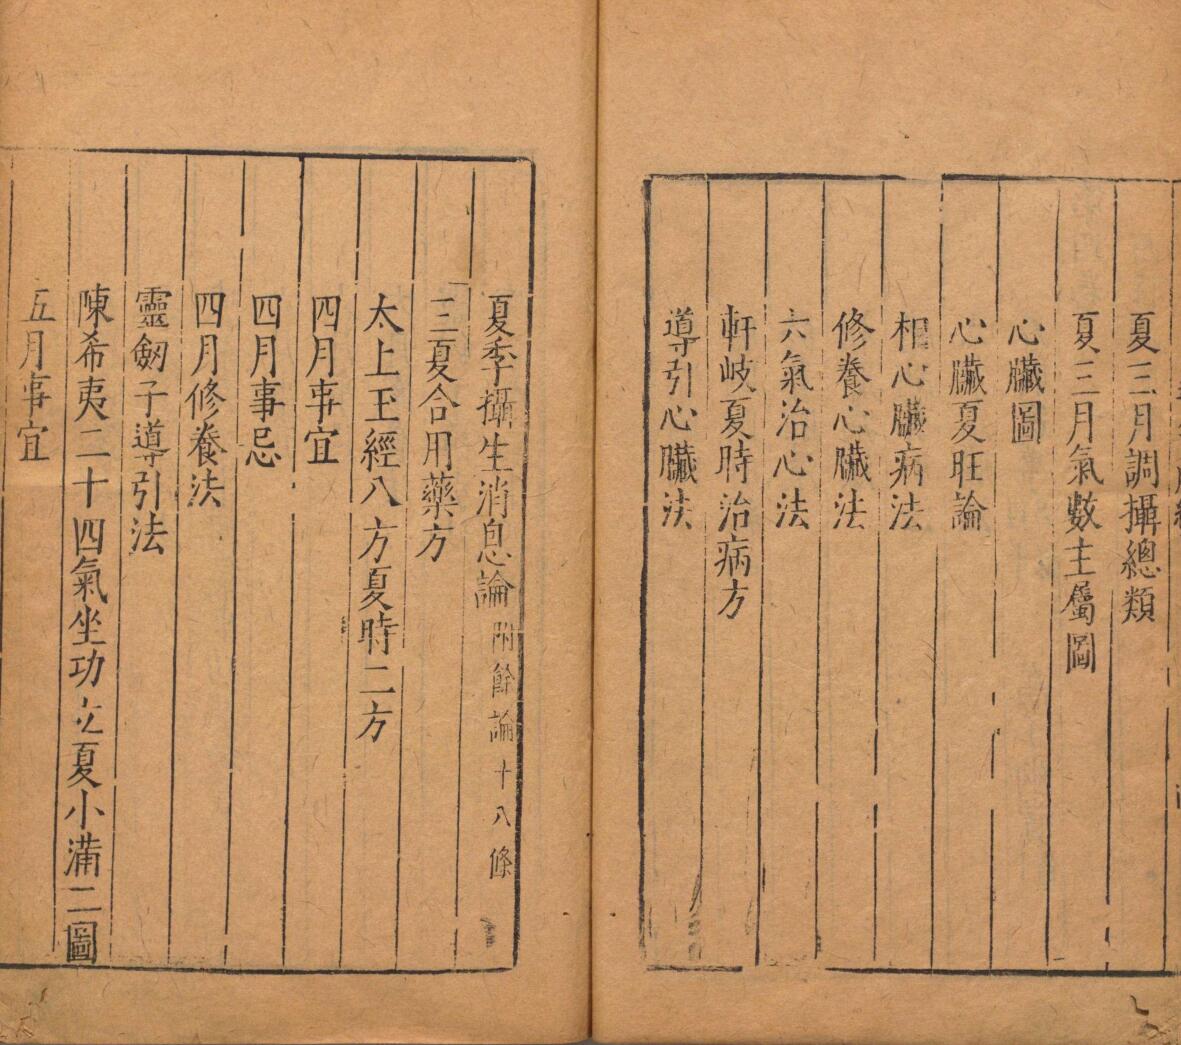 夏三月調攝總類
夏三月氣數主屬圖
心臟圖
心臟夏旺論
相心臟病法
修養心臟法
六氣治心法
軒岐夏時治病方
導引心臟法
夏季攝生消息論附餘論十八條
三夏合用藥方
太上玉經八方夏時二方
四月事宜
四月事忌
四月修養法
靈劒子導引法
陳希夷二十四氣坐功立夏小滿二圖
五月事宜